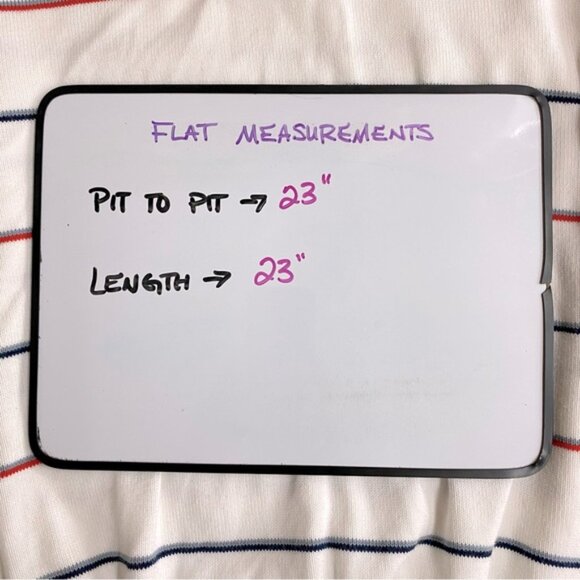 FLAT MEASUREMENTS
PIT TO PIT → 23"
LENGTH → 23"